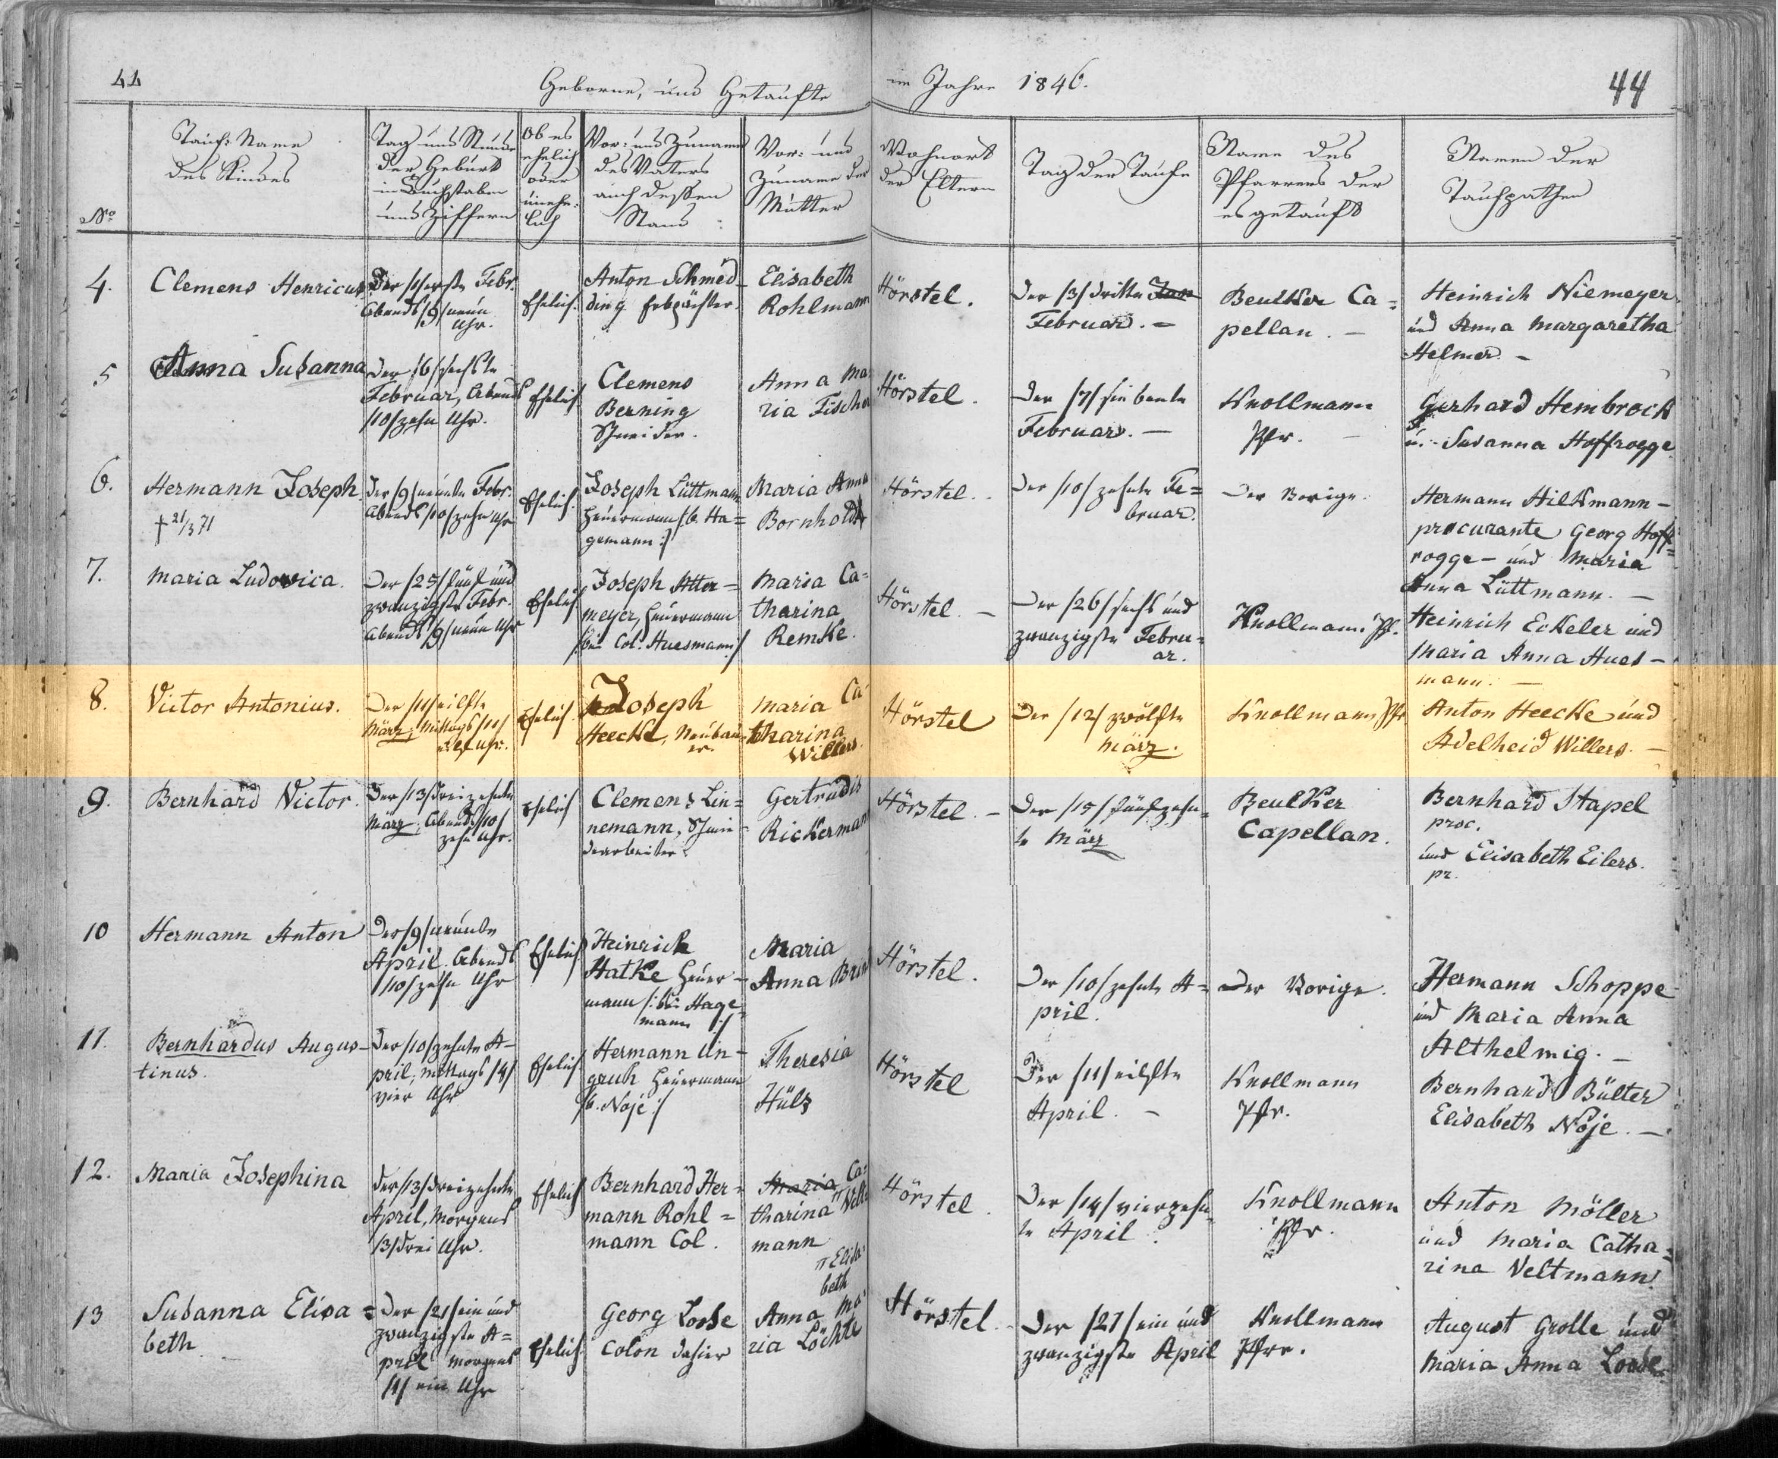 44
Geborne, und Getaufte im Jahre 1846.
44
No
Tauf-Name
des Kindes
Tag und Stunde
der Geburt
in Buchstaben
und Ziffern
Ob es
ehelich
oder
unehe-
lich
Vor- und Zuname
des Vaters
auch dessen
Stand
Vor- und
Zuname der
Mutter
Wohnort
der Eltern
Tag der Taufe
Name des
Pfarrers der
es getauft
Namen der
Taufpathen
4.
Clemens Henricus
Der /1/ erste Febr.
Abends /9/ neun
Uhr.
Ehelich.
Anton Schmed-
ding Erbpächter.
Elisabeth
Rohlmann
Hörstel.
Der /3/ dritte Jan
Februar. –
Beulker Ca=
pellan. –
Heinrich Niemeyer
und Anna Margaretha
Helmer. –
5
Anna Susanna
Der /6/ sechste
Februar, Abends
/10/ zehn Uhr.
Ehelich
Clemens
Berning
Schneider.
Anna Ma
ria Fischer
Hörstel.
Der /7/ siebente
Februar. –
Knollmann
Pfr. –
Gerhard Hembrock
u. Susanna Hoffrogge
6.
Hermann Joseph.
† 21/3 71
Der /9/ neunte Febr.
Abends /10/ zehn Uhr
Ehelich.
Joseph Lüttmann
Heuermann /:b. Ha=
gemann:/
Maria Anna
Bornholdt
Hörstel.
Der /10/ zehnte Fe=
bruar.
Der Vorige.
Hermann Hilkmann –
procurante Georg Hoff=
rogge – und Maria
Anna Lüttmann. –
7.
Maria Ludovica.
Der /25/ fünf und
zwanzigste Febr.
Abends /9/ neun Uhr
Ehelich
Joseph Atter=
meyer, Heuermann
/:bei Col. Huesmann:/
Maria Ca=
tharina
Remke.
Hörstel. –
Der /26/ sechs und
zwanzigste Febru=
ar.
Knollmann Pf.
Heinrich Eckeler und
Maria Anna Hues-
mann. –
8.
Victor Antonius.
Der /11/ eilfte
März, Mittags /11/
eilf Uhr.
Ehelich.
Joseph
Heecke, Neubau-
er.
Maria Ca-
tharina
Willers.
Hörstel
Der /12/ zwölfte
März.
Knollmann Pfr
Anton Heecke und
Adelheid Willers. –
9.
Bernhard Victor.
Der /13/ dreizehnte
März, Abends /10/
zehn Uhr.
Ehelich
Clemens Lin=
nemann,
Gertrudis
Rickermann
Hörstel. –
Der /15/ fünfzehn=
te März
Beulker
Capellan.
Bernhard Stapel
proc.
und Elisabeth Eilers.
pr.
10
Hermann Anton
Der /9/ neunte
April Abends
/10/ zehn Uhr
Ehelich
Heinrich
Hatke Heuer-
mann /:bei Hage=
mann:/
Maria
Anna
Hörstel.
Der /10/ zehnte A=
pril.
Der Vorige.
Hermann Schoppe
und Maria Anna
Althelmig. –
11.
Bernhardus Augus-
tinus.
Der /10/ zehnte A-
pril, Mittags /4/
vier Uhr
Ehelich
Hermann Un-
gruh Heuermann
/:b. Noje:/
Theresia
Hüls
Hörstel
Der /11/ eilfte
April. –
Knollmann
Pfr.
Bernhard Bülter
Elisabeth Noje. –
12.
Maria Josephina
Der /13/ dreizehnte
April, Morgens
/3/ drei Uhr.
Ehelich
Bernhard Her=
mann Rohl=
mann Col.
Maria Ca=
tharina Velt
mann
Elisa-
beth
Hörstel.
Der /14/ vierzehn
te April
Knollmann
Pfr.
Anton Möller
und Maria Catha=
rina Veltmann.
13
Susanna Elisa=
beth
Der /21/ ein und
zwanzigste A=
pril Morgens
/1/ ein Uhr
Ehelich.
Georg Loose
Colon dahier
Anna Ma-
ria Löchte
Hörstel.
Der /21/ ein und
zwanzigste April
Knollmann
Pfr.
August Grolle und
Maria Anna Loose